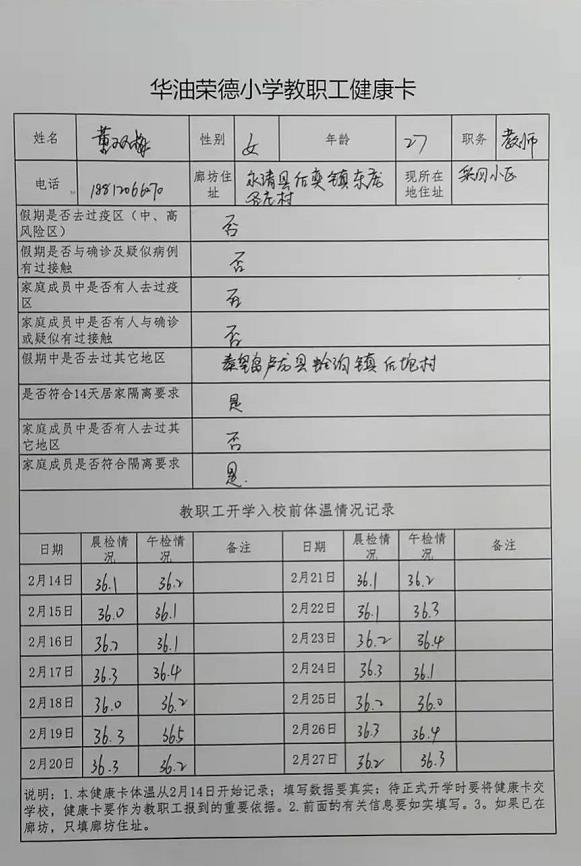 华油荣德小学教职工健康卡
姓名 董双梅 性别 女 年龄 27 职务 教师
电话 廊坊住 永清县后奕镇东
址 村 现所在
地住址 小区
假期是否去过疫区（中、高
风险区） 否
假期是否与确诊及疑似病例
有过接触 否
家庭成员中是否有人去过疫
区 否
家庭成员中是否有人与确诊
或疑似有过接触 否
假期中是否去过其它地区 秦皇岛卢龙县蛤泊镇后坨村
是否符合14天居家隔离要求 是
家庭成员中是否有人去过其
它地区 否
家庭成员是否符合隔离要求 是.
教职工开学入校前体温情况记录
日期 晨检情况 午检情况 备注 日期 晨检情况 午检情况 备注
2月14日 36.1 36.2 2月21日 36.1 36.2
2月15日 36.0 36.1 2月22日 36.1 36.3
2月16日 36.2 36.1 2月23日 36.2 36.4
2月17日 36.3 36.4 2月24日 36.3 36.1
2月18日 36.0 36.2 2月25日 36.2 36.0
2月19日 36.3 36.5 2月26日 36.3 36.4
2月20日 36.3 36.2 2月27日 36.2 36.3
说明：1.本健康卡体温从2月14日开始记录；填写数据要真实；待正式开学时要将健康卡交
学校，健康卡要作为教职工报到的重要依据。2.前面的有关信息要如实填写。3。如果已在
廊坊，只填廊坊住址。